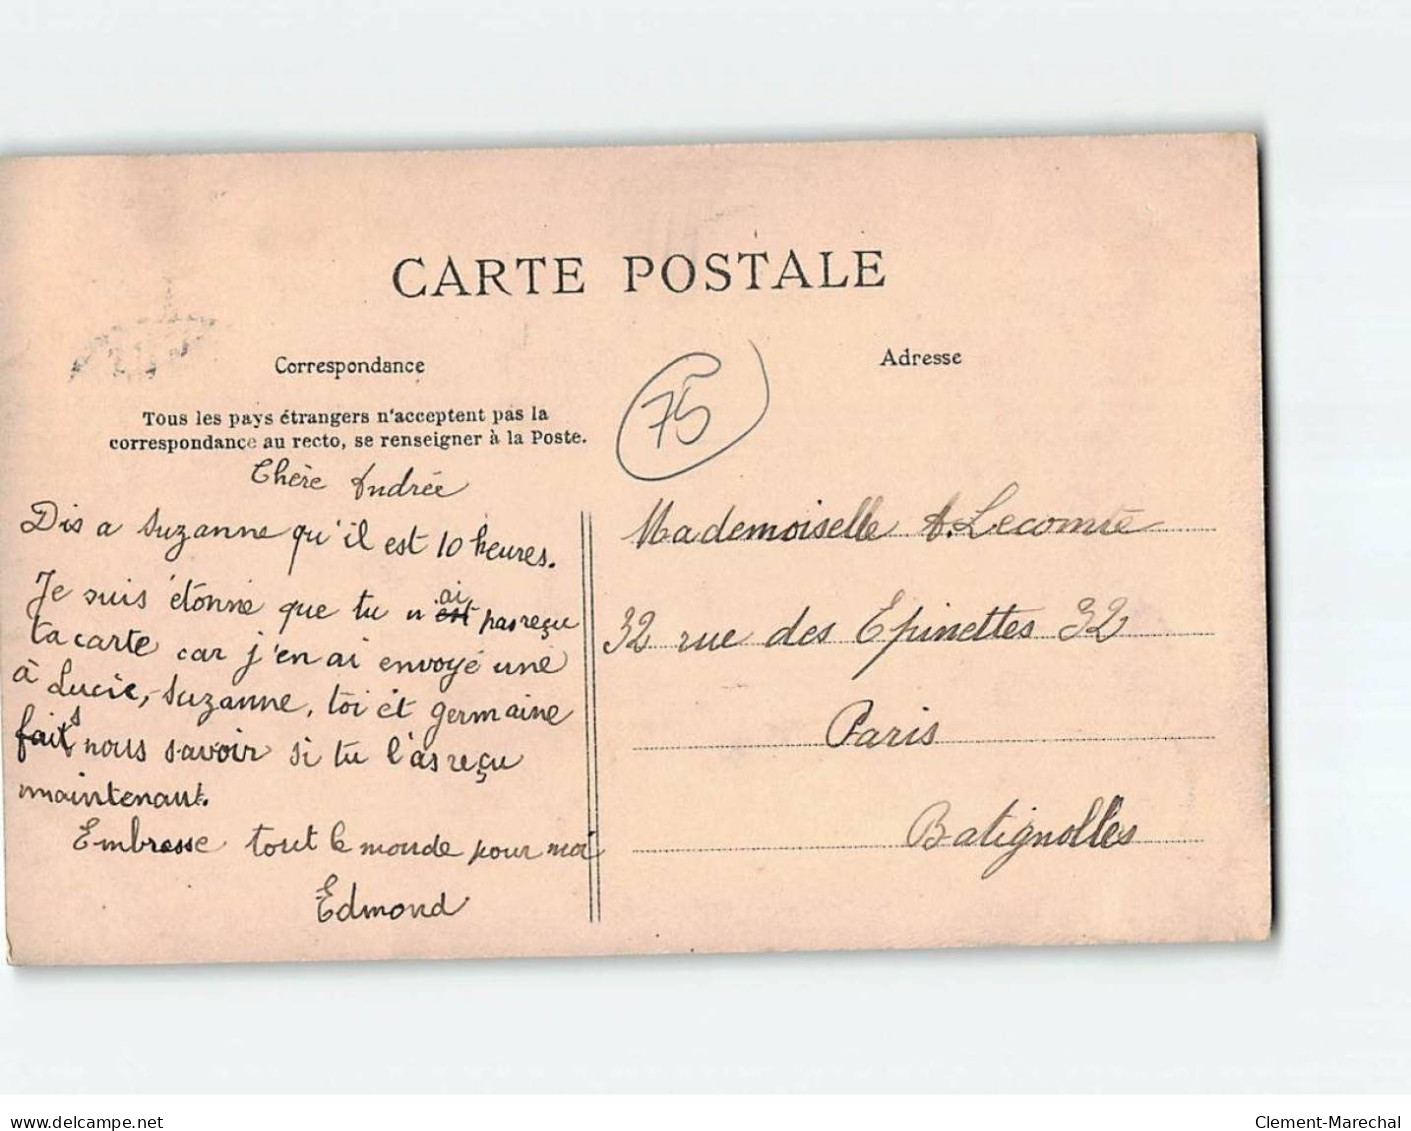 CARTE POSTALE
Correspondance
Adresse
Tous les pays étrangers n'acceptent pas la
correspondance au recto, se renseigner à la Poste.
75
Chère Andrée
Dis a Suzanne qu'il est 10 heures.
Je suis étonné que tu n'ai est pas reçu
ta carte car j'en ai envoyé une
à Lucie, Suzanne, toi et Germaine
faits nous savoir si tu l'as reçu
maintenant.
Embrasse tout le monde pour moi
Edmond
Mademoiselle A. Lecomte
32 rue des Epinettes 32
Paris
Batignolles
www.delcampe.net
Clement-Marechal